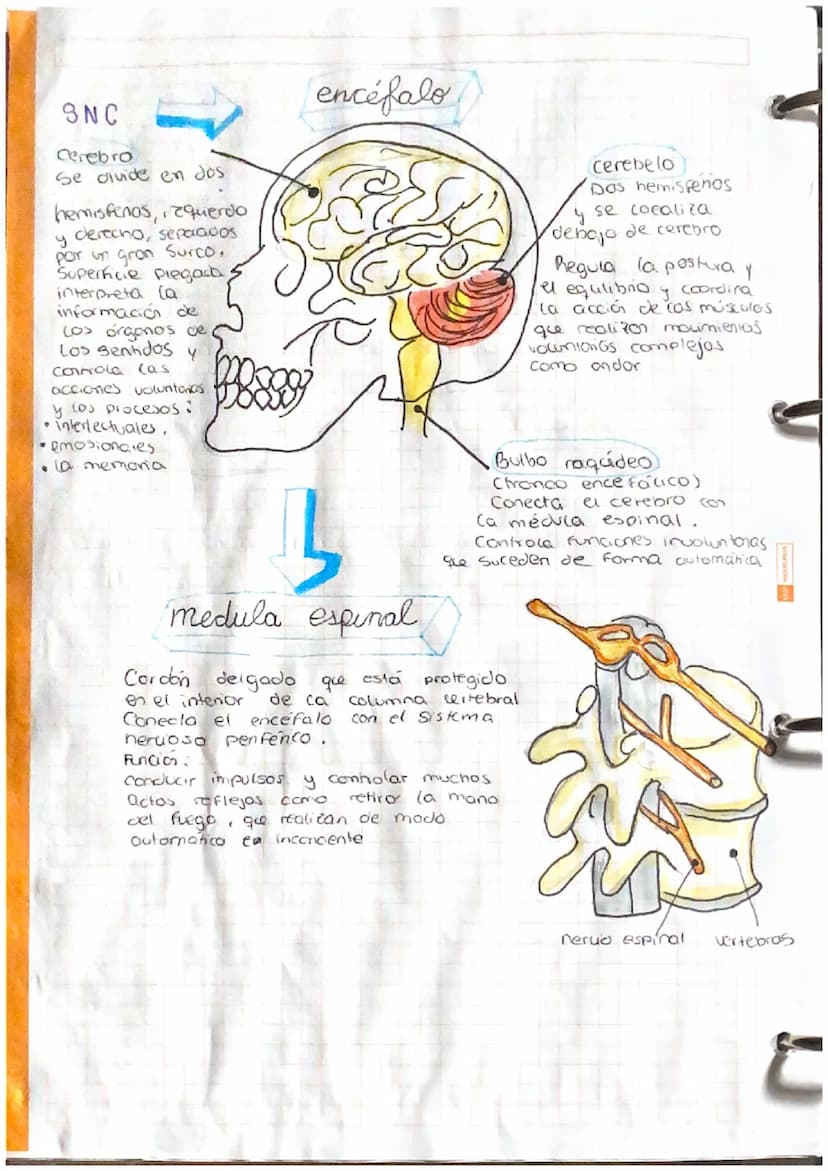 SNC
encéfalo
cerebro
Se divide en dos
hemisferios, izquierdo
y derecho, separados
por un gran surco.
Superficie plegada
interpreta la
información de
los órganos de
los sentidos y
controla las
acciones voluntarias
y los procesos:
• interlectuales.
• emosionales
• la memoria
cerebelo
Dos hemisferios
y se localiza
debajo de cerebro
Regula la postura y
el equlibrio y coordina
la acción de los músculos
que realizan movimientos
voluntarios complejos
como andar
Bulbo raquídeo
(tronco encefálico)
Conecta el cerebro con
la médula espinal.
Controla funciones involuntarias
que suceden de forma automática
medula espinal
Cordón delgado que está protegido
en el interior de la columna vertebral
Conecta el encéfalo con el sistema
nervioso periférico.
Función:
conducir impulsos y controlar muchos
actos reflejos como retirar la mano
del fuego, que realizan de modo
automático e inconciente
nervio espinal
vertebras